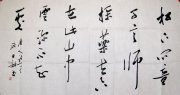 松下問童
子言師
採藥去只
在此山中
雲深不知
處